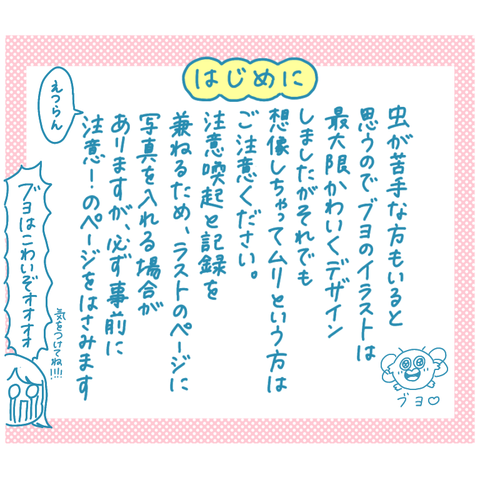 はじめに
虫が苦手な方もいると
思うので ブヨのイラストは
最大限かわいくデザイン
しましたがそれでも
想像しちゃってムリという方は
ご注意ください。
注意喚起と記録を
兼ねるため、ラストのページに
写真を入れる場合が
ありますが、必ず事前に
注意!のページをはさみます
ブヨ♡
えつらん
ブヨはこわいぞォォォォ
気をつけてね!!!!